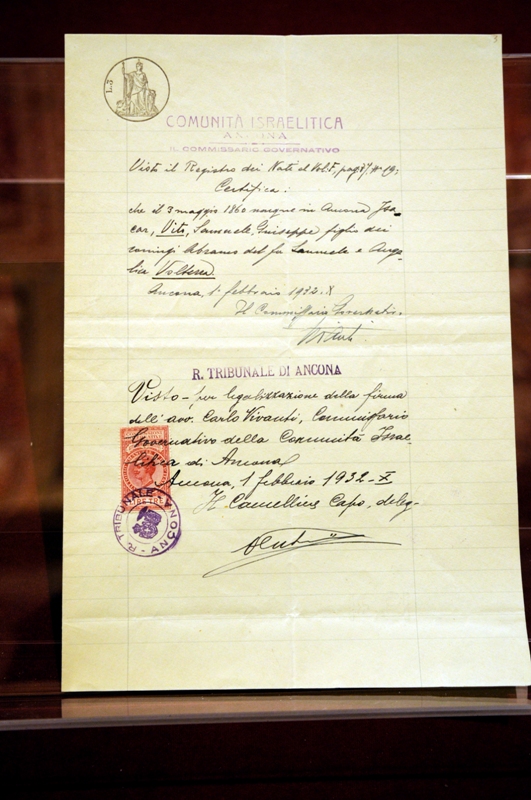 L.3
COMUNITÀ ISRAELITICA
ANCONA
IL COMMISSARIO GOVERNATIVO
Visto il Registro dei Nati al Vol. I, pag. 87, N° 19;
Certifica:
che il 3 maggio 1860 nacque in Ancona Isa-
car, Vito, Samuele Giuseppe figlio dei
coniugi Abramo del fu Samuele e Ange-
lia Volterra
Ancona, 1 febbraio 1932-X
Il Commissario Governativo
Vivanti
R. TRIBUNALE DI ANCONA
Visto per legalizzazione della firma
dell'avv. Carlo Vivanti, Commissario
Governativo della Comunità Israe-
litica di Ancona
Ancona, 1 febbraio 1932-X
Il Cancelliere Capo, deleg-
R. TRIBUNALE - ANCONA
LIRE TRE